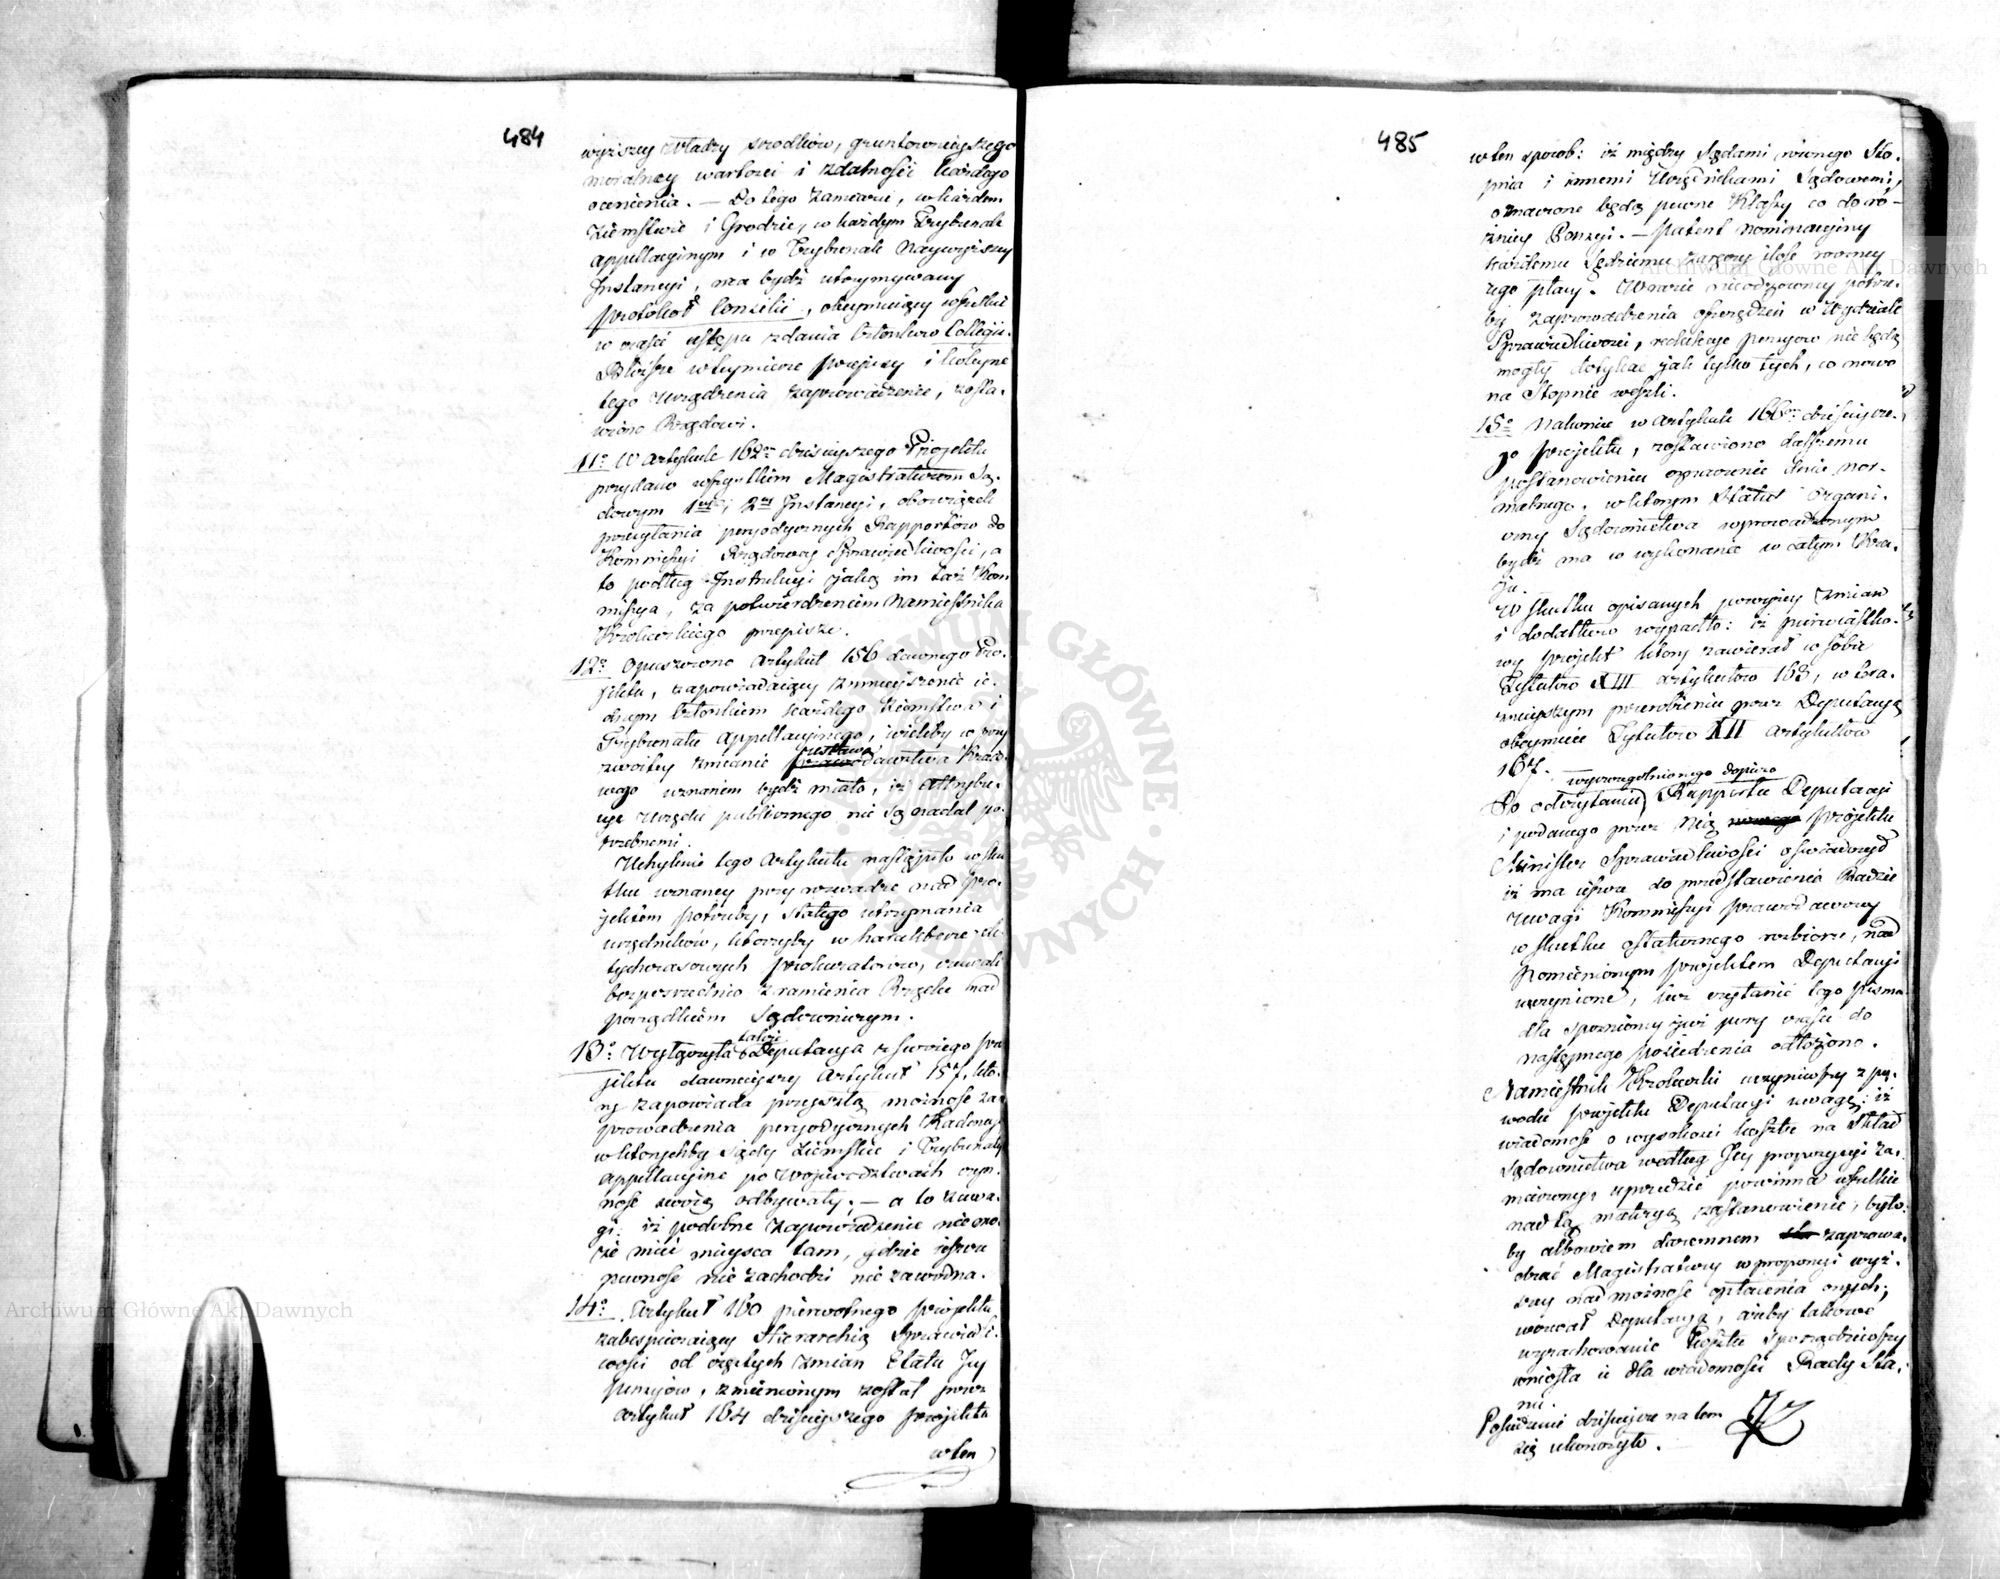 484
wyższey władzy srodków, gruntownieyszego
moralney wartości i zdatności każdego
ocenienia. — Do tego zamiaru, w każdem
Ziemstwie i Grodzie, w każdym Trybunale
appellacyinym i w Trybunale Naywyższey
Instancyi, ma bydź utrzymywany
protokoł Consilii, obeymuiący wszelkie
w części wstępu zdania Członków Collegii.
Bliższe w tey mierze przepisy i kolejne
tego urządzenia zaprowadzenie, zosta-
wiono Rządowi.
11o W artykule 162m dzisieyszego Projektu
przydano wszystkim Magistraturom Są-
dowym 1ey i 2ey Instancyi, obowiązek
przesyłania peryodycznych Rapportów do
Kommissyi Rządowey Sprawiedliwości, a
to podług Instrukcyi jaką im taż Kom
missya, za potwierdzeniem Namiestnika
Królewskiego przepisze.
12o Opuszczono artykuł 156 dawnego Pro-
jektu, zapowiadaiący zmnieyszenie ie-
dnym Członkiem każdego Ziemstwa i
Trybunału Appellacyinego, ieżeliby w przy
zwoitey zmianie prawodawstwa Kraio-
wego uznanem bydź miało, iż attrybu-
cye Urzędu publicznego nie są nadal po-
trzebnemi.
Uchylenie tego artykułu nastąpiło w sku
tku uznaney przy rozwadze nad pro-
jektem potrzeby, stałego utrzymania
urzędników, którzyby w charakterze do-
tychczasowych prokuratorów, czuwali
bezpośrednio z ramienia Rządu nad
porządkiem Sądowniczym.
13o Wyłączyła także Deputacya z swoiego pro
jektu dawnieyszy artykuł 157, któ-
ry zapowiada przyszłą możność za-
prowadzenia peryodycznych Kadency
w którychby sądy Ziemskie i Trybunały
appellacyine po Województwach czyn-
ność swoię odbywały; — a to z uwa-
gi: iż podobne zapowiedzenie nie mo-
że mieć mieysca tam, gdzie ieszcze
pewność nie zachodzi nie zawodna.
14o Artykuł 160 pierwotnego projektu
zabespieczaiący Hierarchią Sprawiedli-
wości od częstych zmian Etatu Jey
pensyiów, zmienionym został przez
artykuł 164 dzisieyszego projektu
w ten
485
w ten sposób: iż między Sądami równego Sto-
pnia i innemi Urzędnikami Sądowemi,
oznaczone będą pewne Klassy co do ró-
żnicy Pensyi. — Patent nominacyiny
każdemu Sędziemu zaręczy ilość roczney
iego płacy. W razie nieodzowney potrze-
by zaprowadzenia oszczędzeń w Wydziale
Sprawiedliwości, redukcye pensyow nie będą
mogły dotykać jak tylko tych, co nowo
na Stopnie weszli.
15o Nakoniec w artykule 166m dzisieysze-
go projektu, zostawiono dalszemu
postanowieniu oznaczenie dnia nor-
malnego, w którym Statut Organi-
czny Sądownictwa wprowadzonym
bydź ma w wykonanie w całym Kra-
ju.
W skutku opisanych powyżey zmian
i dodatków wypadło: iż pierwiastko-
wy projekt który zawierał w sobie
Tytułów XIII artykułów 163, w tera-
znieyszym przerobieniu przez Deputacyą
obeymuie Tytułów XII artykułów
167.
wyszczególnionego dopiero
Po odczytaniu Rapportu Deputacyi
i podanego przez Nią nowego projektu
Minister Sprawiedliwości oświadczył
iż ma ieszcze do przedstawienia Radzie
Uwagi Kommissyi prawodawczey
w skutku ostatecznego rozbioru, nad
pomienionym projektem Deputacyi
uczynione, lecz czytanie tego pisma
dla spóznioney już pory czasu do
następnego posiedzenia odłożono.
Namiestnik Królewski uczyniwszy z po-
wodu projektu Deputacyi uwagę: iż
wiadomość o wysokości kosztu na Skład
Sądownictwa według Jey propozycyi za-
mierzony, uprzedzić powinna wszelkie
nad tą materyą zastanowienie, było-
by albowiem daremnem zaprowa-
dzać Magistratury w proporcyi wyż-
szey nad możność opłacenia onych;
wezwał Deputacyą, ażeby takowe
wyrachowanie Kosztu sporządziwszy
wniosła ie dla wiadomości Rady Sta-
nu.
Posiedzenie dzisieysze na tem
się ukończyło.